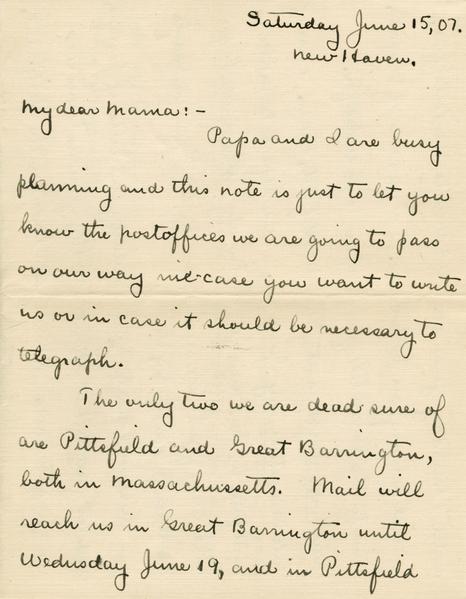 Saturday June 15, 07.
New Haven.
My dear Mama:-
Papa and I are busy
planning and this note is just to let you
know the postoffices we are going to pass
on our way in case you want to write
us or in case it should be necessary to
telegraph.
The only two we are dead sure of
are Pittsfield and Great Barrington,
both in Massachussetts. Mail will
reach us in Great Barrington until
Wednesday June 19, and in Pittsfield